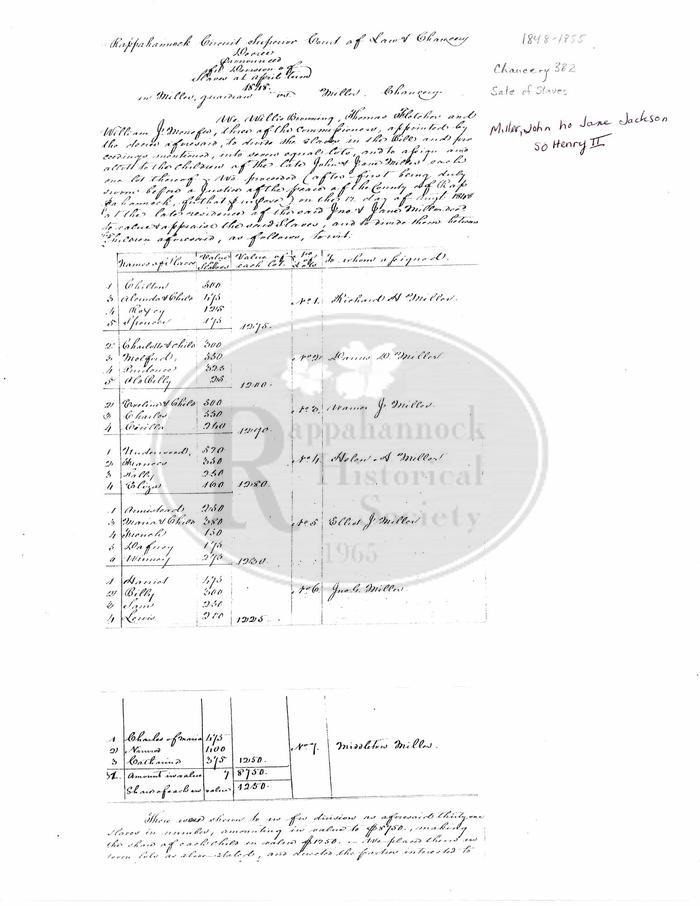 Rappahannock Circuit Superior Court of Law & Chancery
Decree
pronounced
for Division of
Slaves at April Term
1848.
in Miller, guardian vs Miller Chancery
We, Willis Browning, Thomas Fletcher and
William J. Menefee, three of the Commissioners, appointed by
the decree aforesaid, to divide the slaves in the Bill and pro
ceedings mentioned, into seven equal lots, and to assign and
allott to the children of the late John & Jane Miller each
one lot thereof. We proceeded (after first being duly
sworn before a Justice of the peace of the County of Rap
pahannock, for that purpose) on the day of 1848
at the late residence of the said Jno & Jane Miller dec'd
to value & appraise the said Slaves, and to divide them between
Children aforesaid, as follows, to wit.
Names of Slaves Value of Slaves Value of each lot No of Lots To whom assigned.
1 Chilton 500
3 & Child 475
4 Roxey 125
5 Spencer 175 1275. No 1. Richard A Miller.
2 Charlotte & Child 300
3 550
4 Prudence 325
5 Old Billy 25 1200. No 2 D. Miller
2 Eveline & Child 500
3 Charles 550
4 240 1290 No 3. J Miller.
1 Underwood, 520
2 Frances 350
3 Sally 250
4 Eliza 160 1280. No 4 Helen A Miller
1 Armistead 250
3 Maria & Child 380
4 French 150
5 Dafney 175
6 Winney 275 1230. No 5 Elliot J Miller
1 Harriet 475
2 Billy 300
3 Sam 250
4 Lewis 200 1225. No 6 Jno G. Miller
1 Charles of Maria 475
2 400
3 Catharine 375 1250. No 7. Middleton Miller.
31. Amount in value 7 8750.
Share of each in value 1250.
There were shown to us for division as aforesaid thirty one
slaves in number, amounting in value to $8750., making
the share of each child in value $1250. We placed them in
seven lots as above stated, and directed the parties interested to
1848-1855
Chancery 382
Sale of Slaves
Miller, John h/o Jane Jackson
s/o Henry II
Rappahannock
Historical
Society
1965